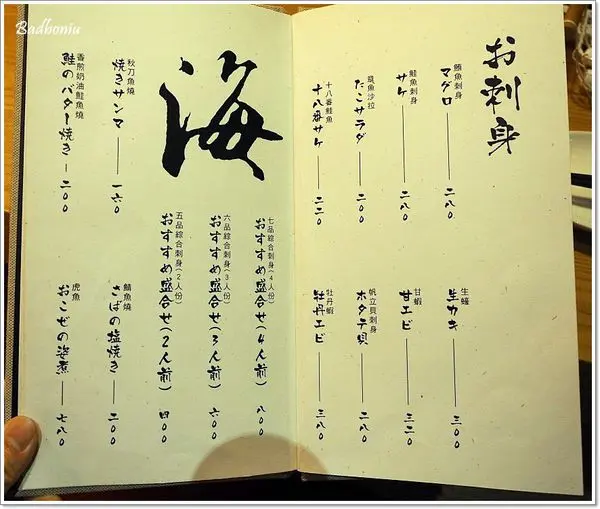 Badboniu
お刺身
鮪魚刺身
マグロ — 二八〇
鮭魚刺身
サケ — 二八〇
魚沙拉
たこサラダ — 二六〇
十八番鮭魚
十八番サケ — 二二〇
生蠔
生カキ — 三〇〇
甘蝦
甘エビ — 三二〇
帆立貝刺身
ホタテ貝 — 二八〇
牡丹蝦
牡丹エビ — 三八〇
海
七品綜合刺身(4人份)
おすすめ盛合せ(4人前) 八〇〇
六品綜合刺身(3人份)
おすすめ盛合せ(3人前) 六〇〇
五品綜合刺身(2人份)
おすすめ盛合せ(2人前) 四〇〇
秋刀魚燒
焼きサンマ — 一六〇
香煎奶油鮭魚燒
鮭のバター焼き — 二〇〇
鯖魚燒
さばの塩焼き — 二〇〇
虎魚
おこぜの姿煮 — 七八〇